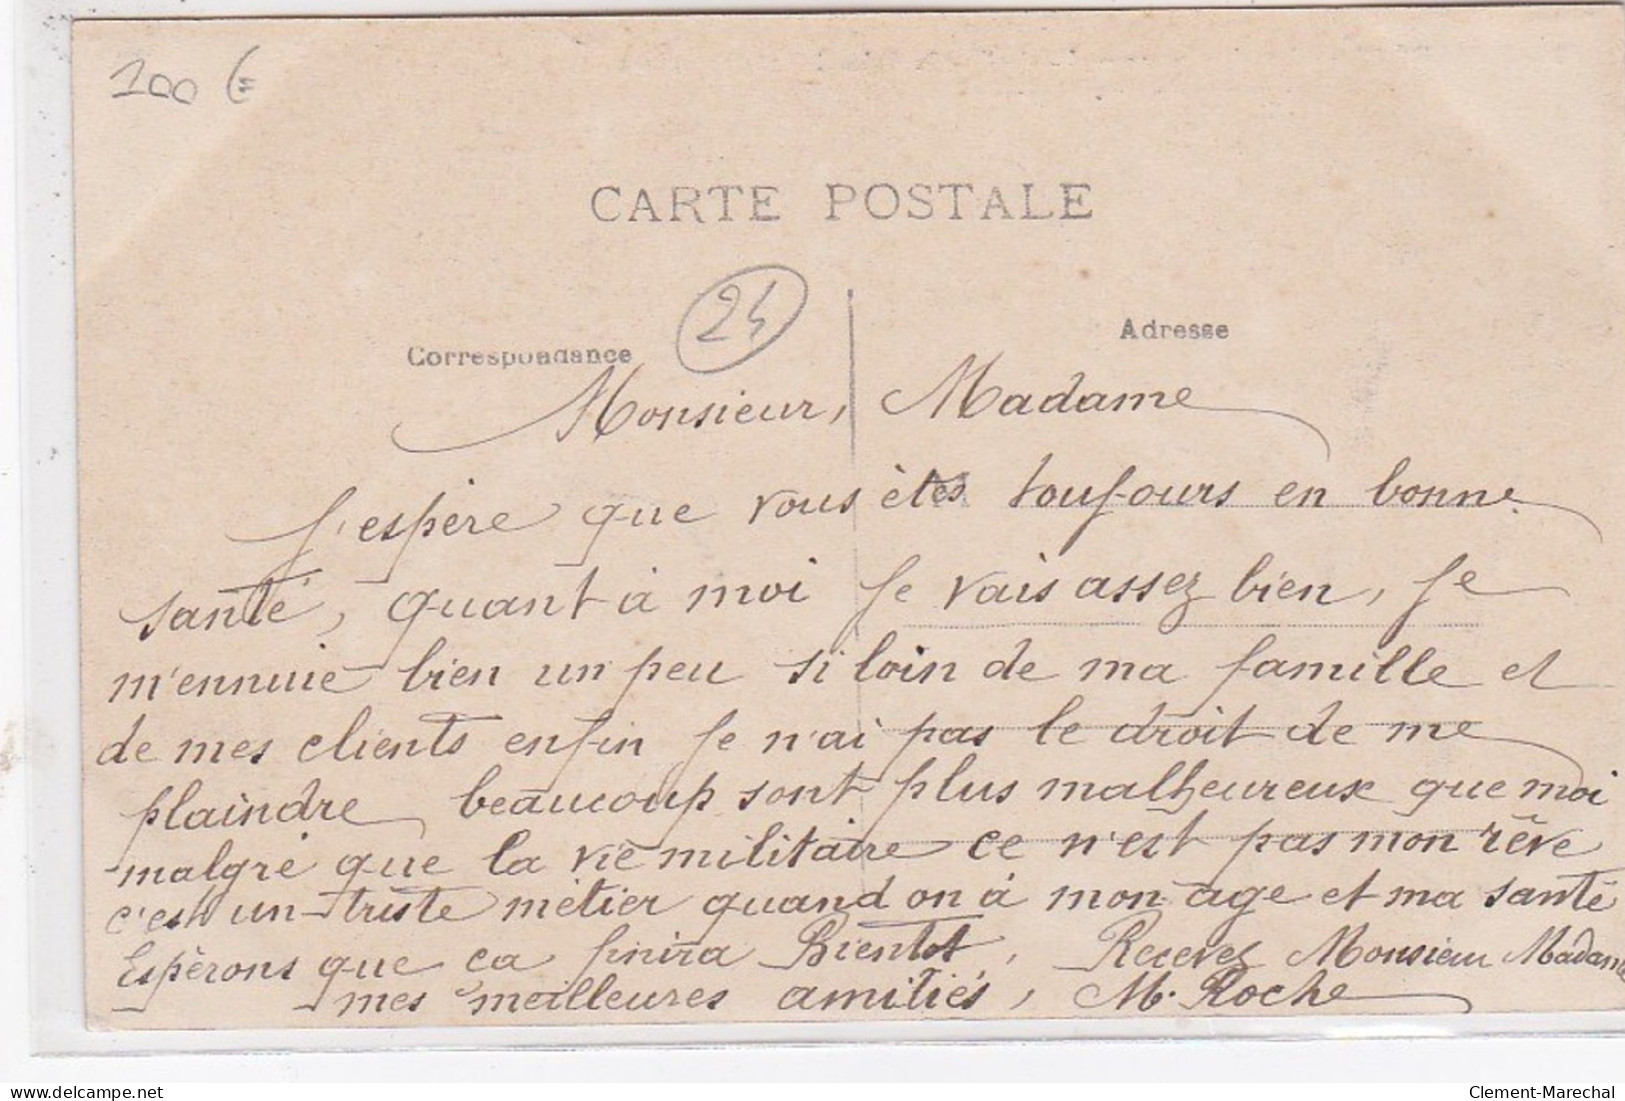 100 €
CARTE POSTALE
24
Correspondance
Adresse
Monsieur, Madame
J'espère que vous êtes toujours en bonne
santé, quant à moi je vais assez bien, je
m'ennuie bien un peu si loin de ma famille et
de mes clients enfin je n'ai pas le droit de me
plaindre beaucoup sont plus malheureux que moi
malgré que la vie militaire ce n'est pas mon rêve
c'est un triste métier quand on à mon age et ma santé
Espèrons que ca finira Bientot, Recevez Monsieur Madame
mes meilleures amitiés, M. Roche
delcampe.net
Clement-Marechal